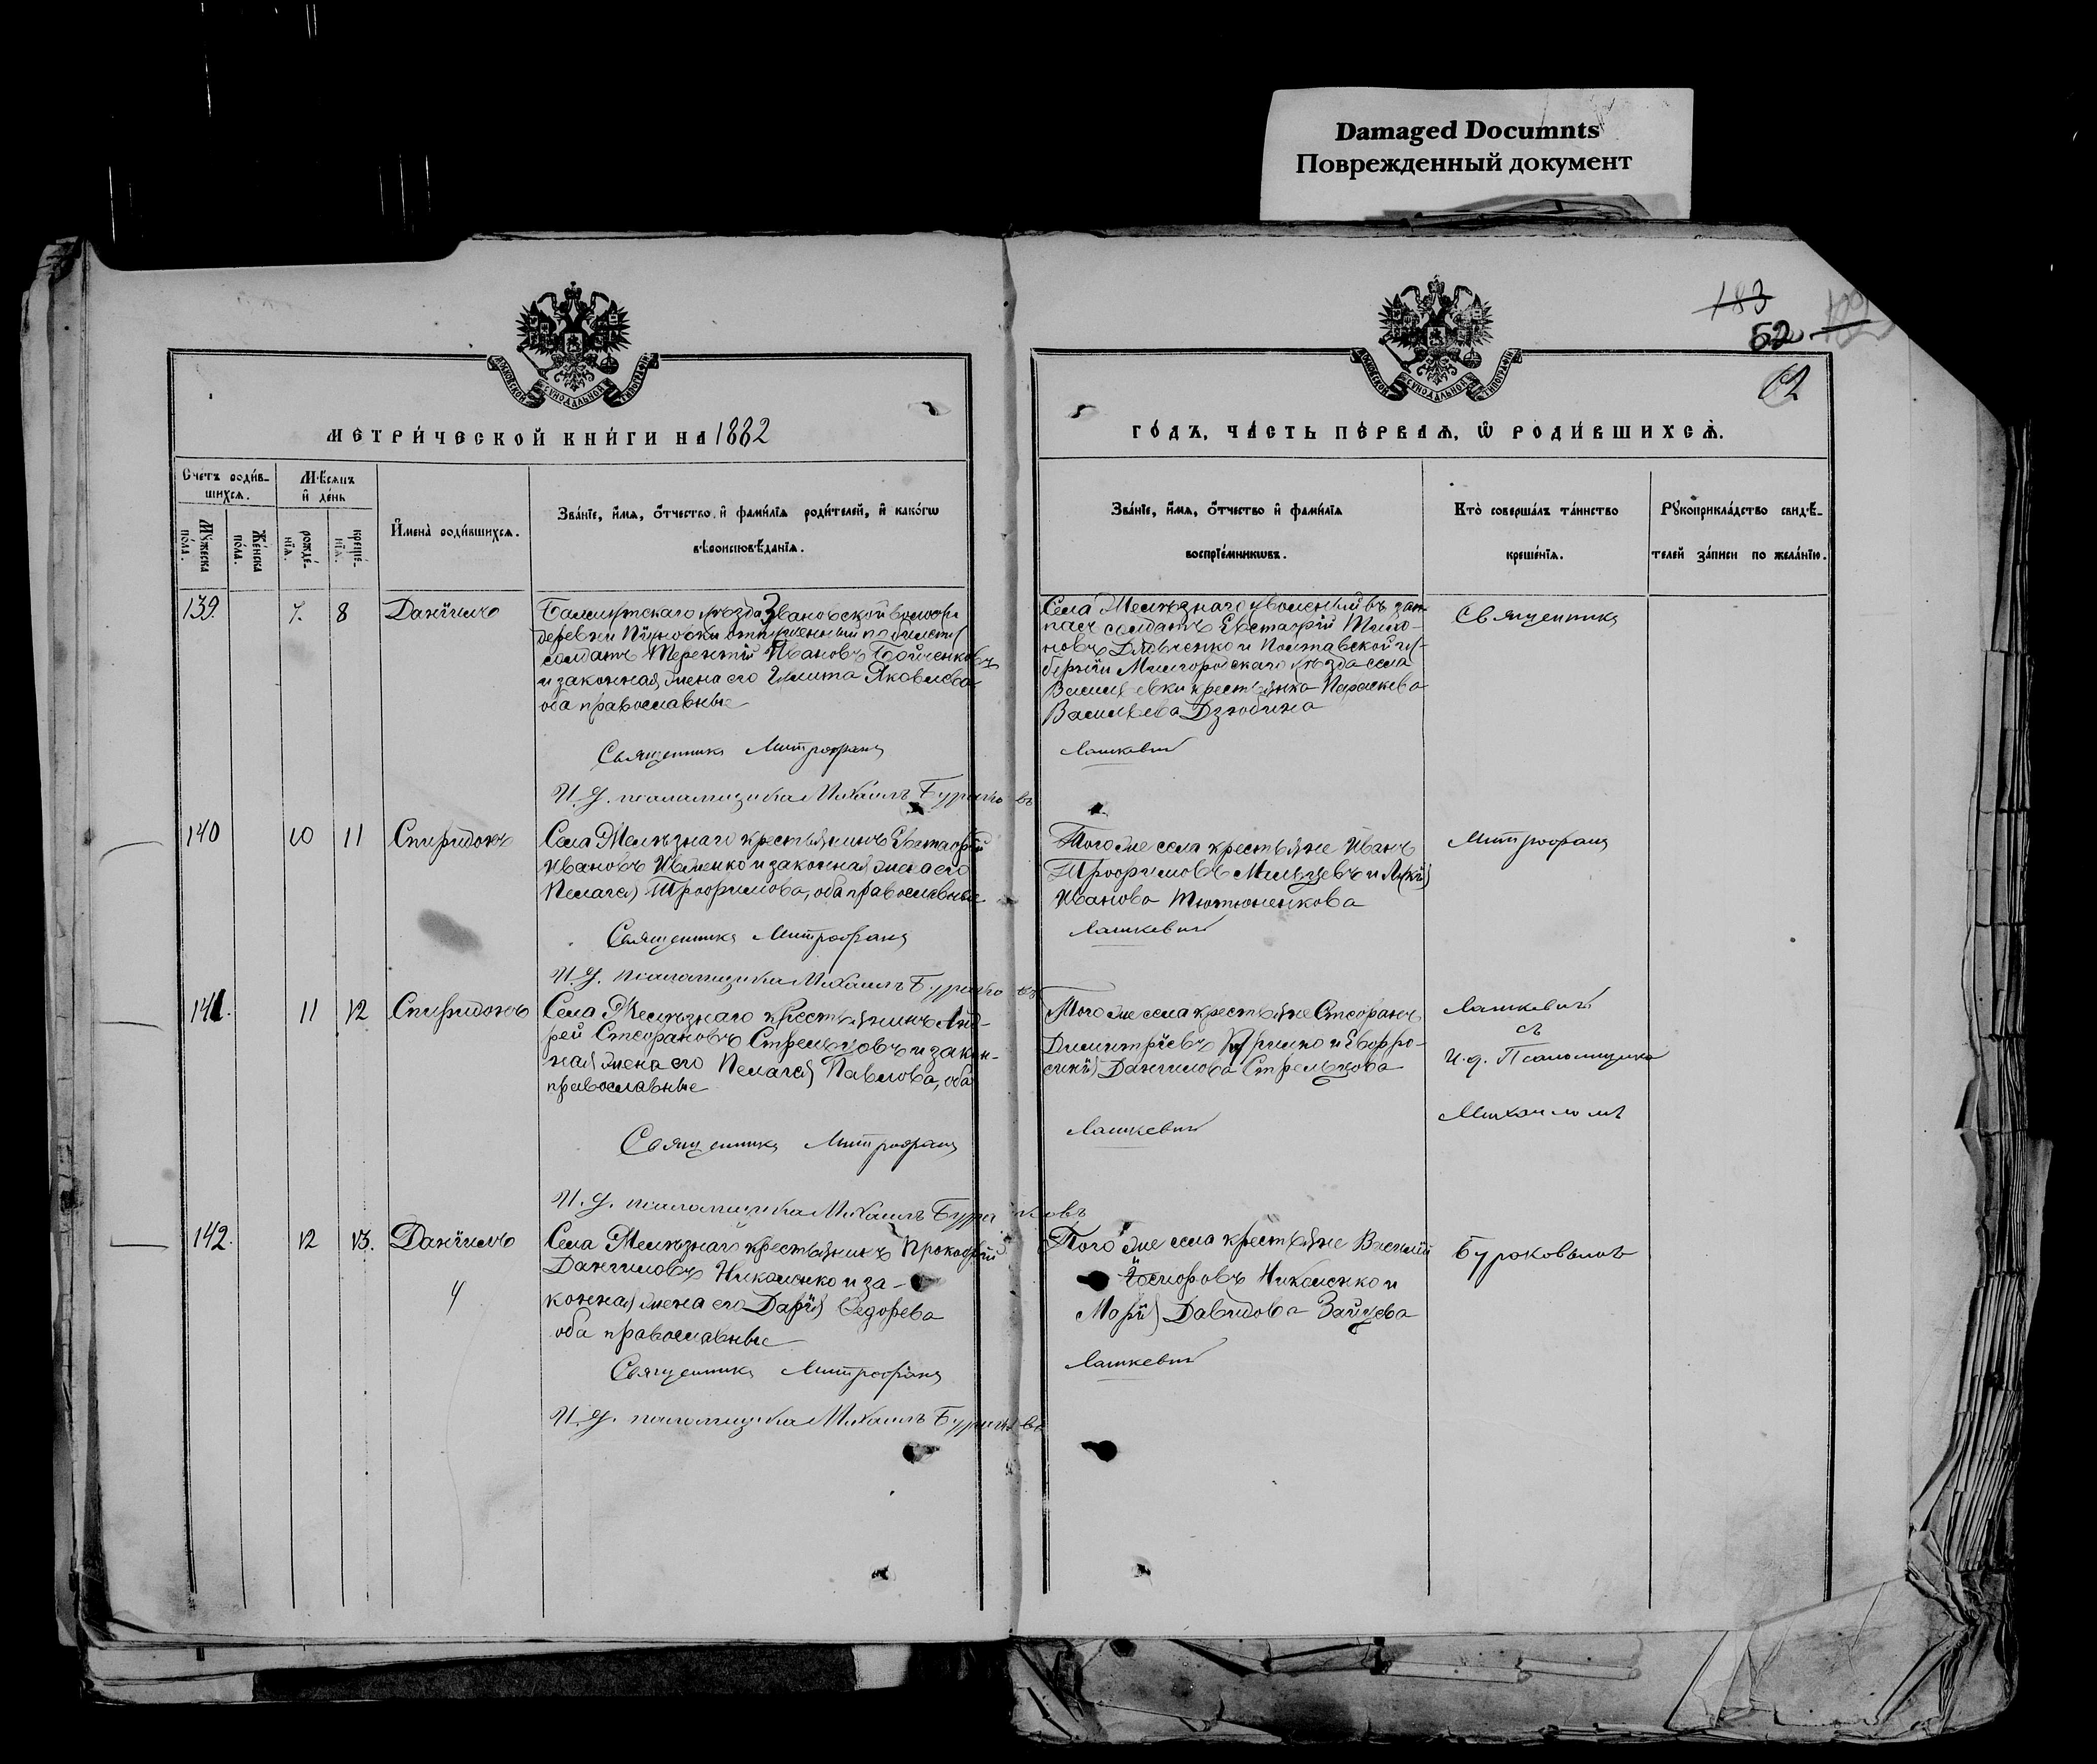 Damaged Documnts
Поврежденный документ
183
52
МОСКОВСКОЙ СѴНОДАЛЬНОЙ ТИПОГРАФІИ
МОСКОВСКОЙ СѴНОДАЛЬНОЙ ТИПОГРАФІИ
МЕТРИ́ЧЕСКОЙ КНИ́ГИ НА 1882
ГО́ДЪ, ЧА́СТЬ ПЕ́РВАѦ, Ѡ҆ РОДИ́ВШИХСѦ.
Счетъ роди́в-
шихсѧ.
Мѣсѧцъ
и҆ де́нь
Мꙋ́жеска по́ла.
Же́нска по́ла.
рожде́-нїѧ.
креще́-нїѧ.
И҆мена̀ роди́вшихсѧ.
Зва́нїе, и҆́мѧ, ѻ҆́тчество, и҆ фами́лїѧ роди́телей, и҆ како́гѡ
вѣроисповѣ́данїѧ.
Зва́нїе, и҆́мѧ, ѻ҆́тчество и҆ фами́лїѧ
воспрїе́мникѡвъ.
Кто̀ соверша́лъ та́инство
креще́нїѧ.
Рꙋкоприкла́дство свидѣ́-
телей за́писи по жела́нїю.
139.
7. 8
Даніилъ
Бахмутскаго уѣзда Звановской волости
деревни
солдатъ Терентій Ивановъ Бойченковъ
и законная жена его Яковлева
оба православные
Священникъ Митрофанъ
И. д. псаломщика Михаилъ Бураковъ
Села Желѣзнаго уволенный въ зап-
солдатъ Евстафій
и Полтавской гу-
берніи Миргородскаго уѣзда села
крестьянка Параскева
Васильева Дзюбина
Лашкевич
Священникъ
140
10 11
Спиридонъ
Села Желѣзнаго крестьянинъ Евстафій
Ивановъ Ивженко и законная жена его
Пелагея Трофимова, оба православные
Священникъ Митрофанъ
И. д. псаломщика Михаилъ Бураковъ
Того же села крестьяне Иванъ
Трофимовъ Мильцевъ и
Иванова Тютюненкова
Лашкевич
Митрофанъ
141.
11 12
Спиридонъ
Села Желѣзнаго крестьянинъ Анд-
рей Стефановъ Стрельцовъ и закон-
ная жена его Пелагея Павлова, оба
православные
Священникъ Митрофанъ
И. д. псаломщика Михаилъ Бураковъ
Того же села крестьяне Стефанъ
Димитріевъ и Евфро-
синія Даніилова Стрельцова
Лашкевич
Лашкевичъ
съ
и. д. Псаломщика
Михаиломъ
142.
12 13.
Даніилъ
Села Желѣзнаго крестьянинъ Прокофій
Данииловъ Николенко и за-
конная жена его Дарія Ѳедорева
оба православные
Священникъ Митрофанъ
И. д. псаломщика Михаилъ Бураковъ
Того же села крестьяне Василій
Николенко и
Марія Давидова Зайцева
Лашкевич
Бураковымъ